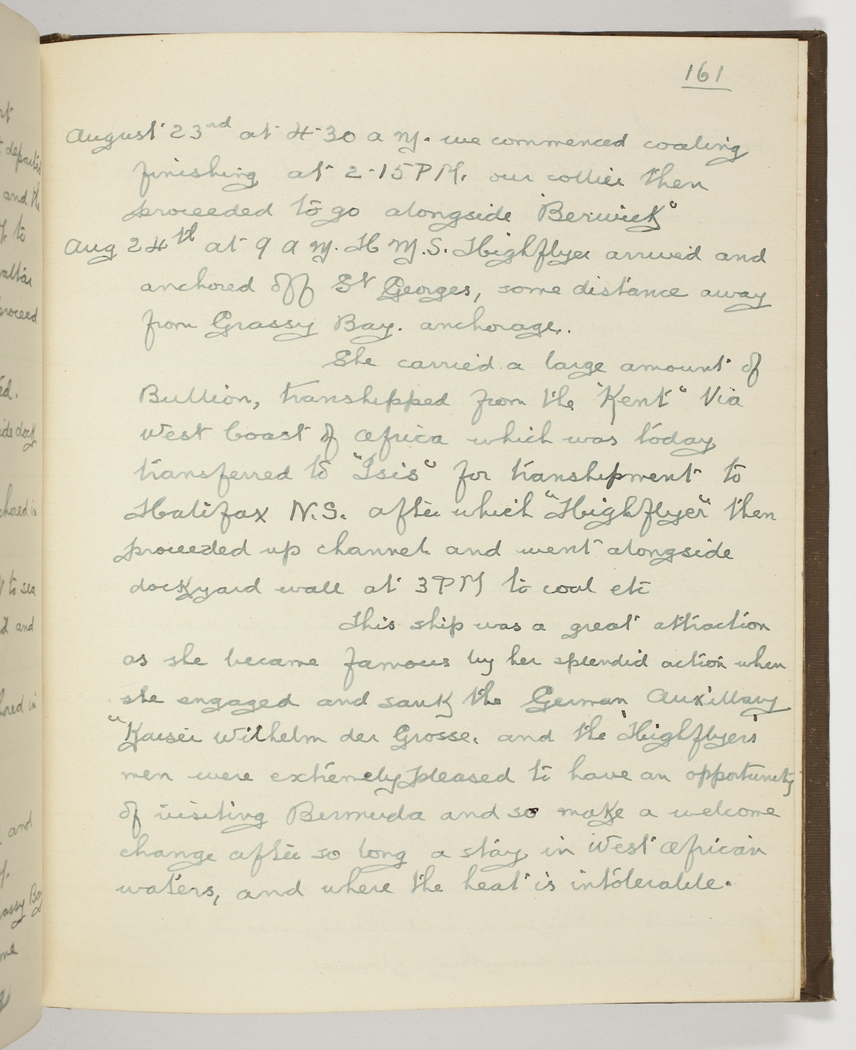 161
August 23nd at 4-30 a m. we commenced coaling
finishing at 2-15 PM. our collier then
proceeded to go alongside "Berwick"
Aug 24th at 9 a m. H M.S. Highflyer arrived and
anchored off St Georges, some distance away
from Grassy Bay. anchorage.
She carried a large amount of
Bullion, transhipped from the "Kent" Via
West Coast of Africa which was today
transferred to "Isis" for transhipment to
Halifax N.S. after which "Highflyer" then
proceeded up channel and went alongside
dockyard wall at 3 PM to coal etc
This ship was a great attraction
as she became famous by her splendid action when
she engaged and sank the German Auxillary
"Kaiser Wilhelm der Grosse. and the 'Highflyers'
men were extremely pleased to have an opportunity
of visiting Bermuda and so make a welcome
change after so long a stay in West African
waters, and where the heat is intolerable.